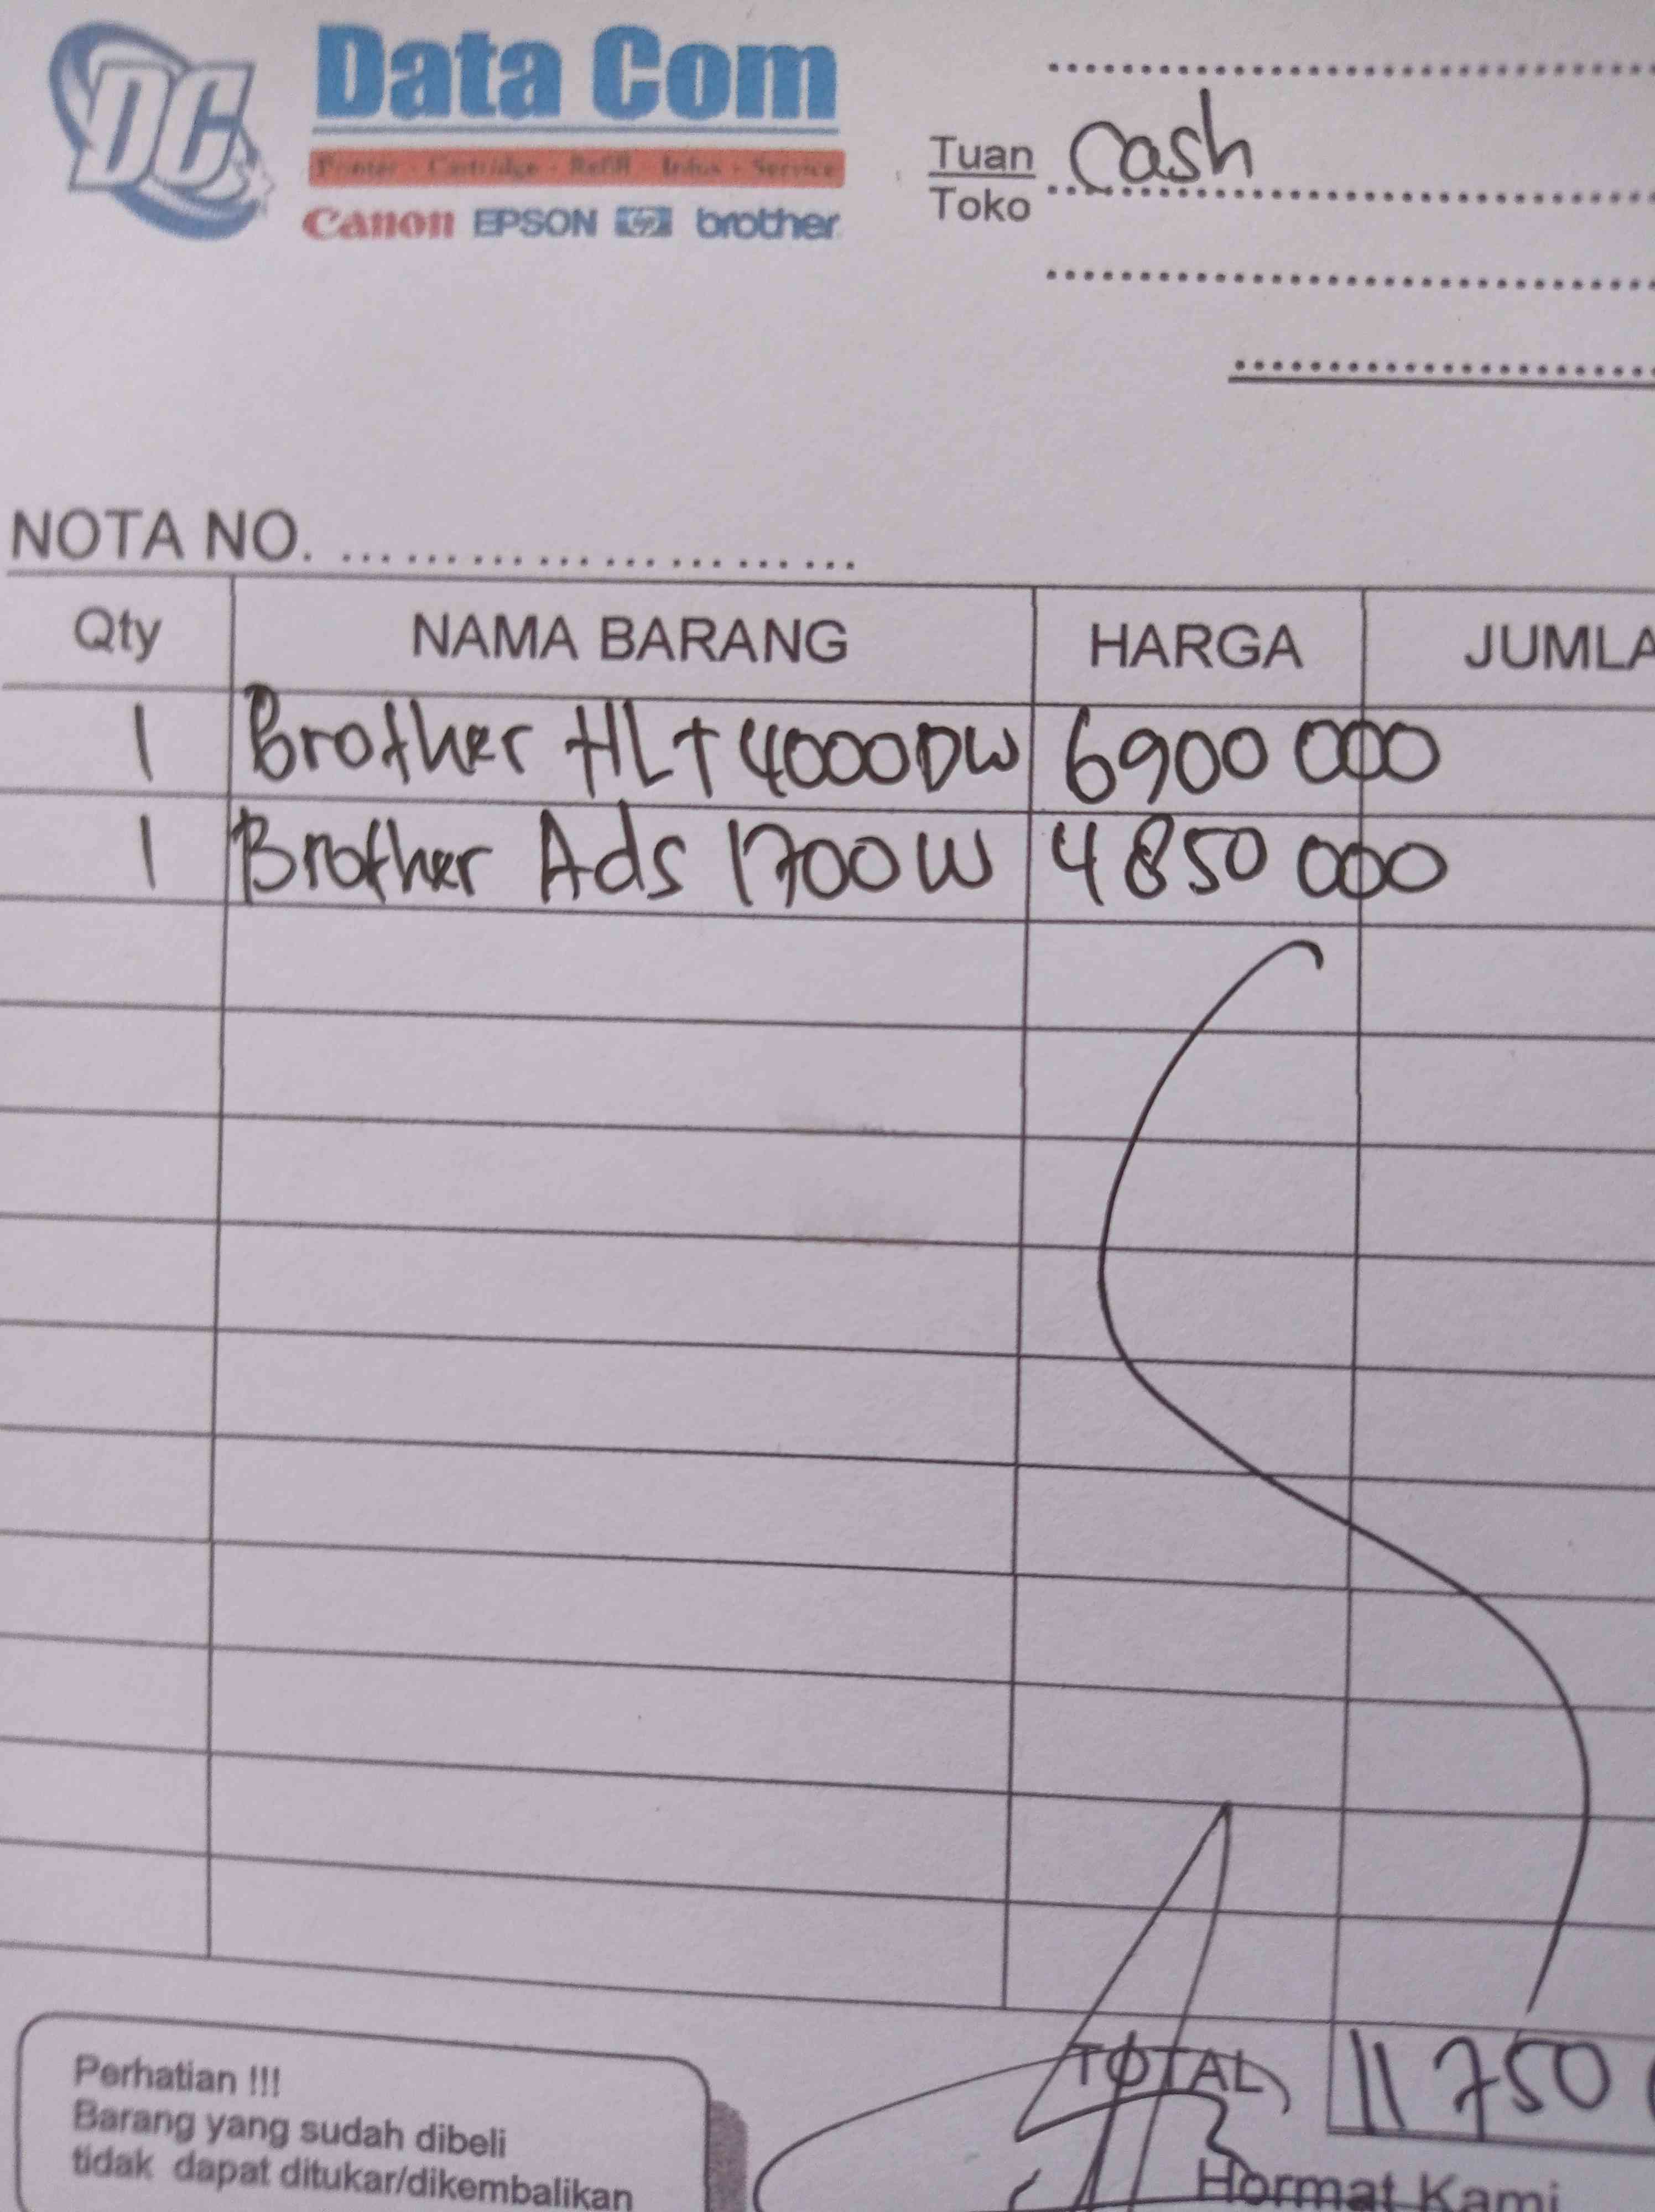 DC
Data Com
Printer - Cartridge - Refill - Infus - Service
Canon EPSON hp brother
Tuan Cash
Toko
NOTA NO.
Qty NAMA BARANG HARGA JUMLA
1 Brother HLT 4000DW 6900 000
1 Brother Ads 1700W 4850 000
TOTAL 11 750
Perhatian !!!
Barang yang sudah dibeli
tidak dapat ditukar/dikembalikan
Hormat Kami